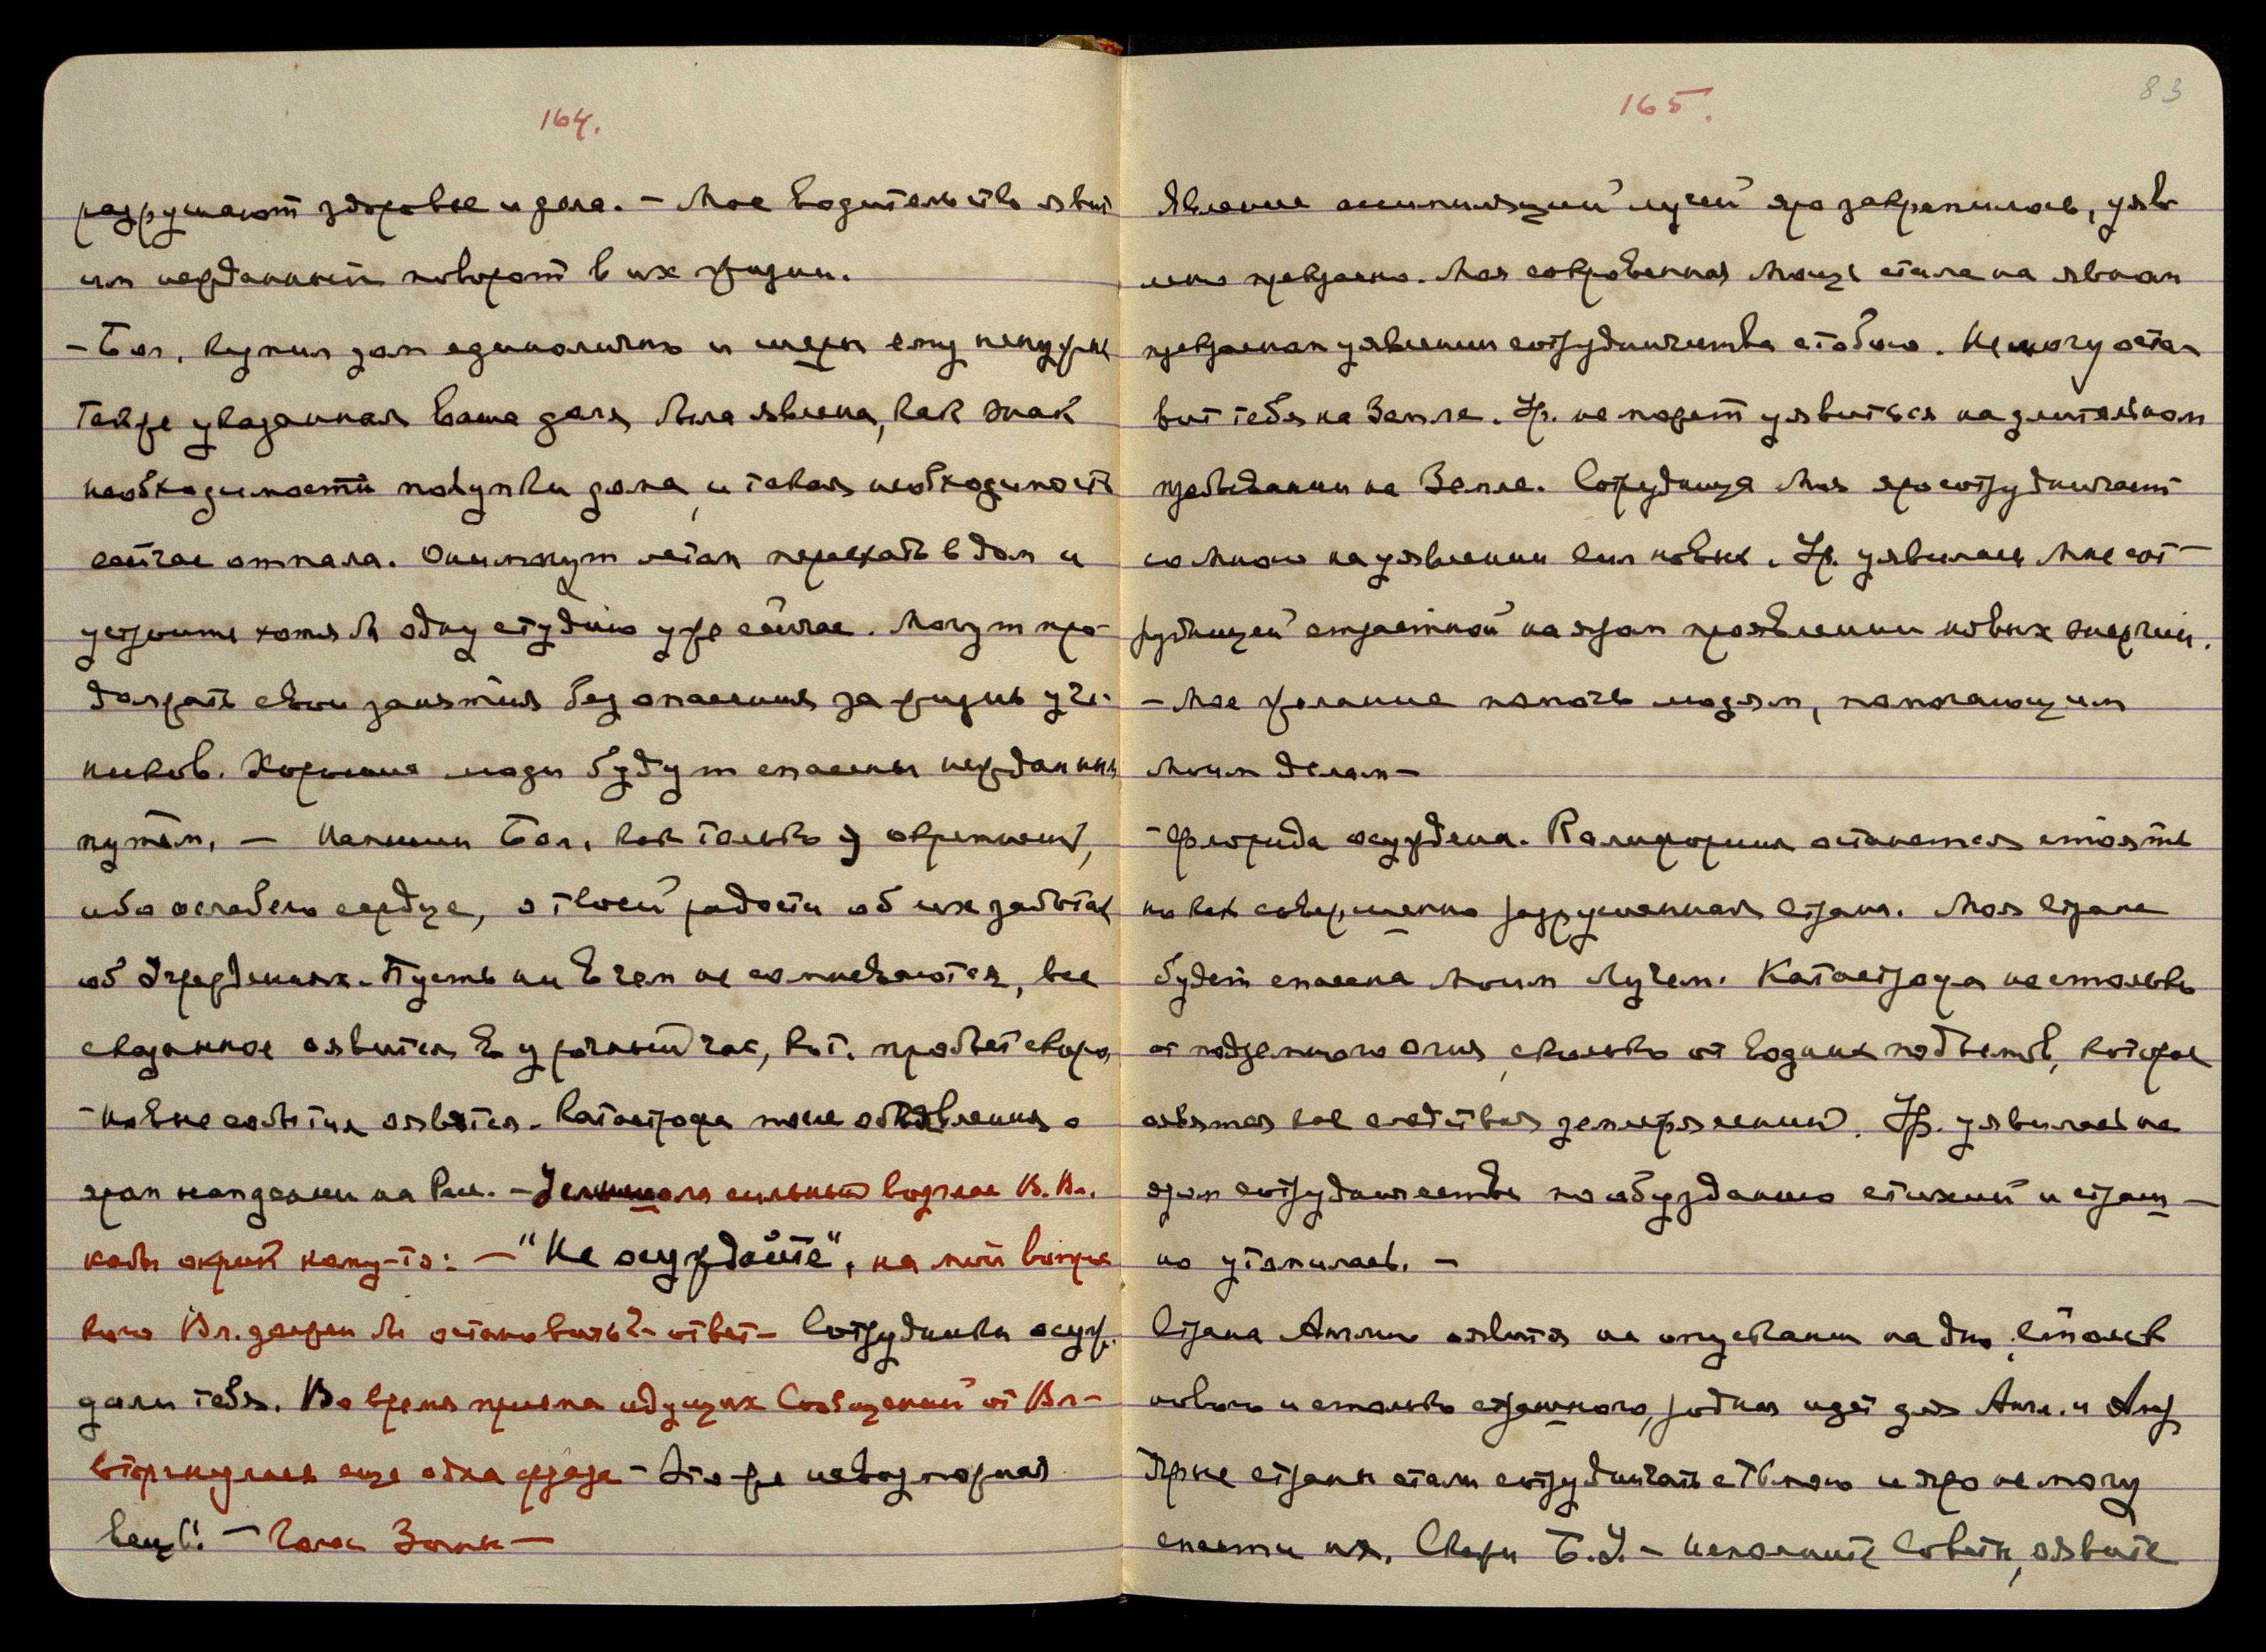 164.
разрушают здоровье и дела. – Мое Водительство явит
им нежданный поворот в их жизни.
– Бол. купил дом единолично и меры ему не нужны
также указанная Ваша доля была явлена, как знак
необходимости покупки дома, и такая необходимость
сейчас отпала. Они могут летом переехать в дом и
устроить хотя бы одну студию уже сейчас. Могут про-
должать свои занятия без опасения за жизнь уче-
ников. Хорошие люди будут спасены нежданным
путем. – Напиши Бол., как только окрепнешь,
ибо ослабело сердце, о твоей радости об их заботах
об Учреждениях. Пусть ни в чем не сомневаются, все
сказанное явится в урочный час, кот. пробьет скоро,
– новые события явятся. Катастрофа после объявления о
яром нападении на – Услышала сильный возглас В. Вл.
как бы окрик кому-то: – "Не осуждайте", на мой вопрос
кого Вл. должен был остановить? – ответ – Сотрудники осуж-
дали тебя. Во время приема идущих Сообщений от Вл. –
вторгнулась еще одна фраза – Это же невозможная
вещь"! – Голос Зины –
83
165.
Явление ассимиляций лучей яро закрепилось, уяв-
лено прекрасно. Моя сокровенная Мощь стала на явном
прекрасном уявлении сотрудничества с тобою. Не могу оста-
вить тебя на Земле. Ур. не может уявиться на длительном
пребывании на Земле. Сотрудница Моя яро сотрудничает
со Мною на уявлении сил новых. Ур. уявилась Мне сот-
рудницей страстной на яром проявлении новых энергий.
– Мое желание помочь людям, помогающим
Моим делам –
– Флорида осуждена. Калифорния останется стоять
но как совершенно разрушенная страна. Моя Страна
будет спасена Моим Лучем. Катастрофа не столько
от подземного огня, сколько от водных подъемов, которые
явятся как следствия землетрясений. Ур. уявилась на
яром сотрудничестве по обузданию стихий и страш-
но утомилась. –
Страна Англии явится на опускании на дно, столько
нового и столько страшного, родная идет для Англ. и Амер.
Ярые страны стали сотрудничать с Тьмою и яро не могу
спасти их. Скажи Б.У. – исполните Советы, явите